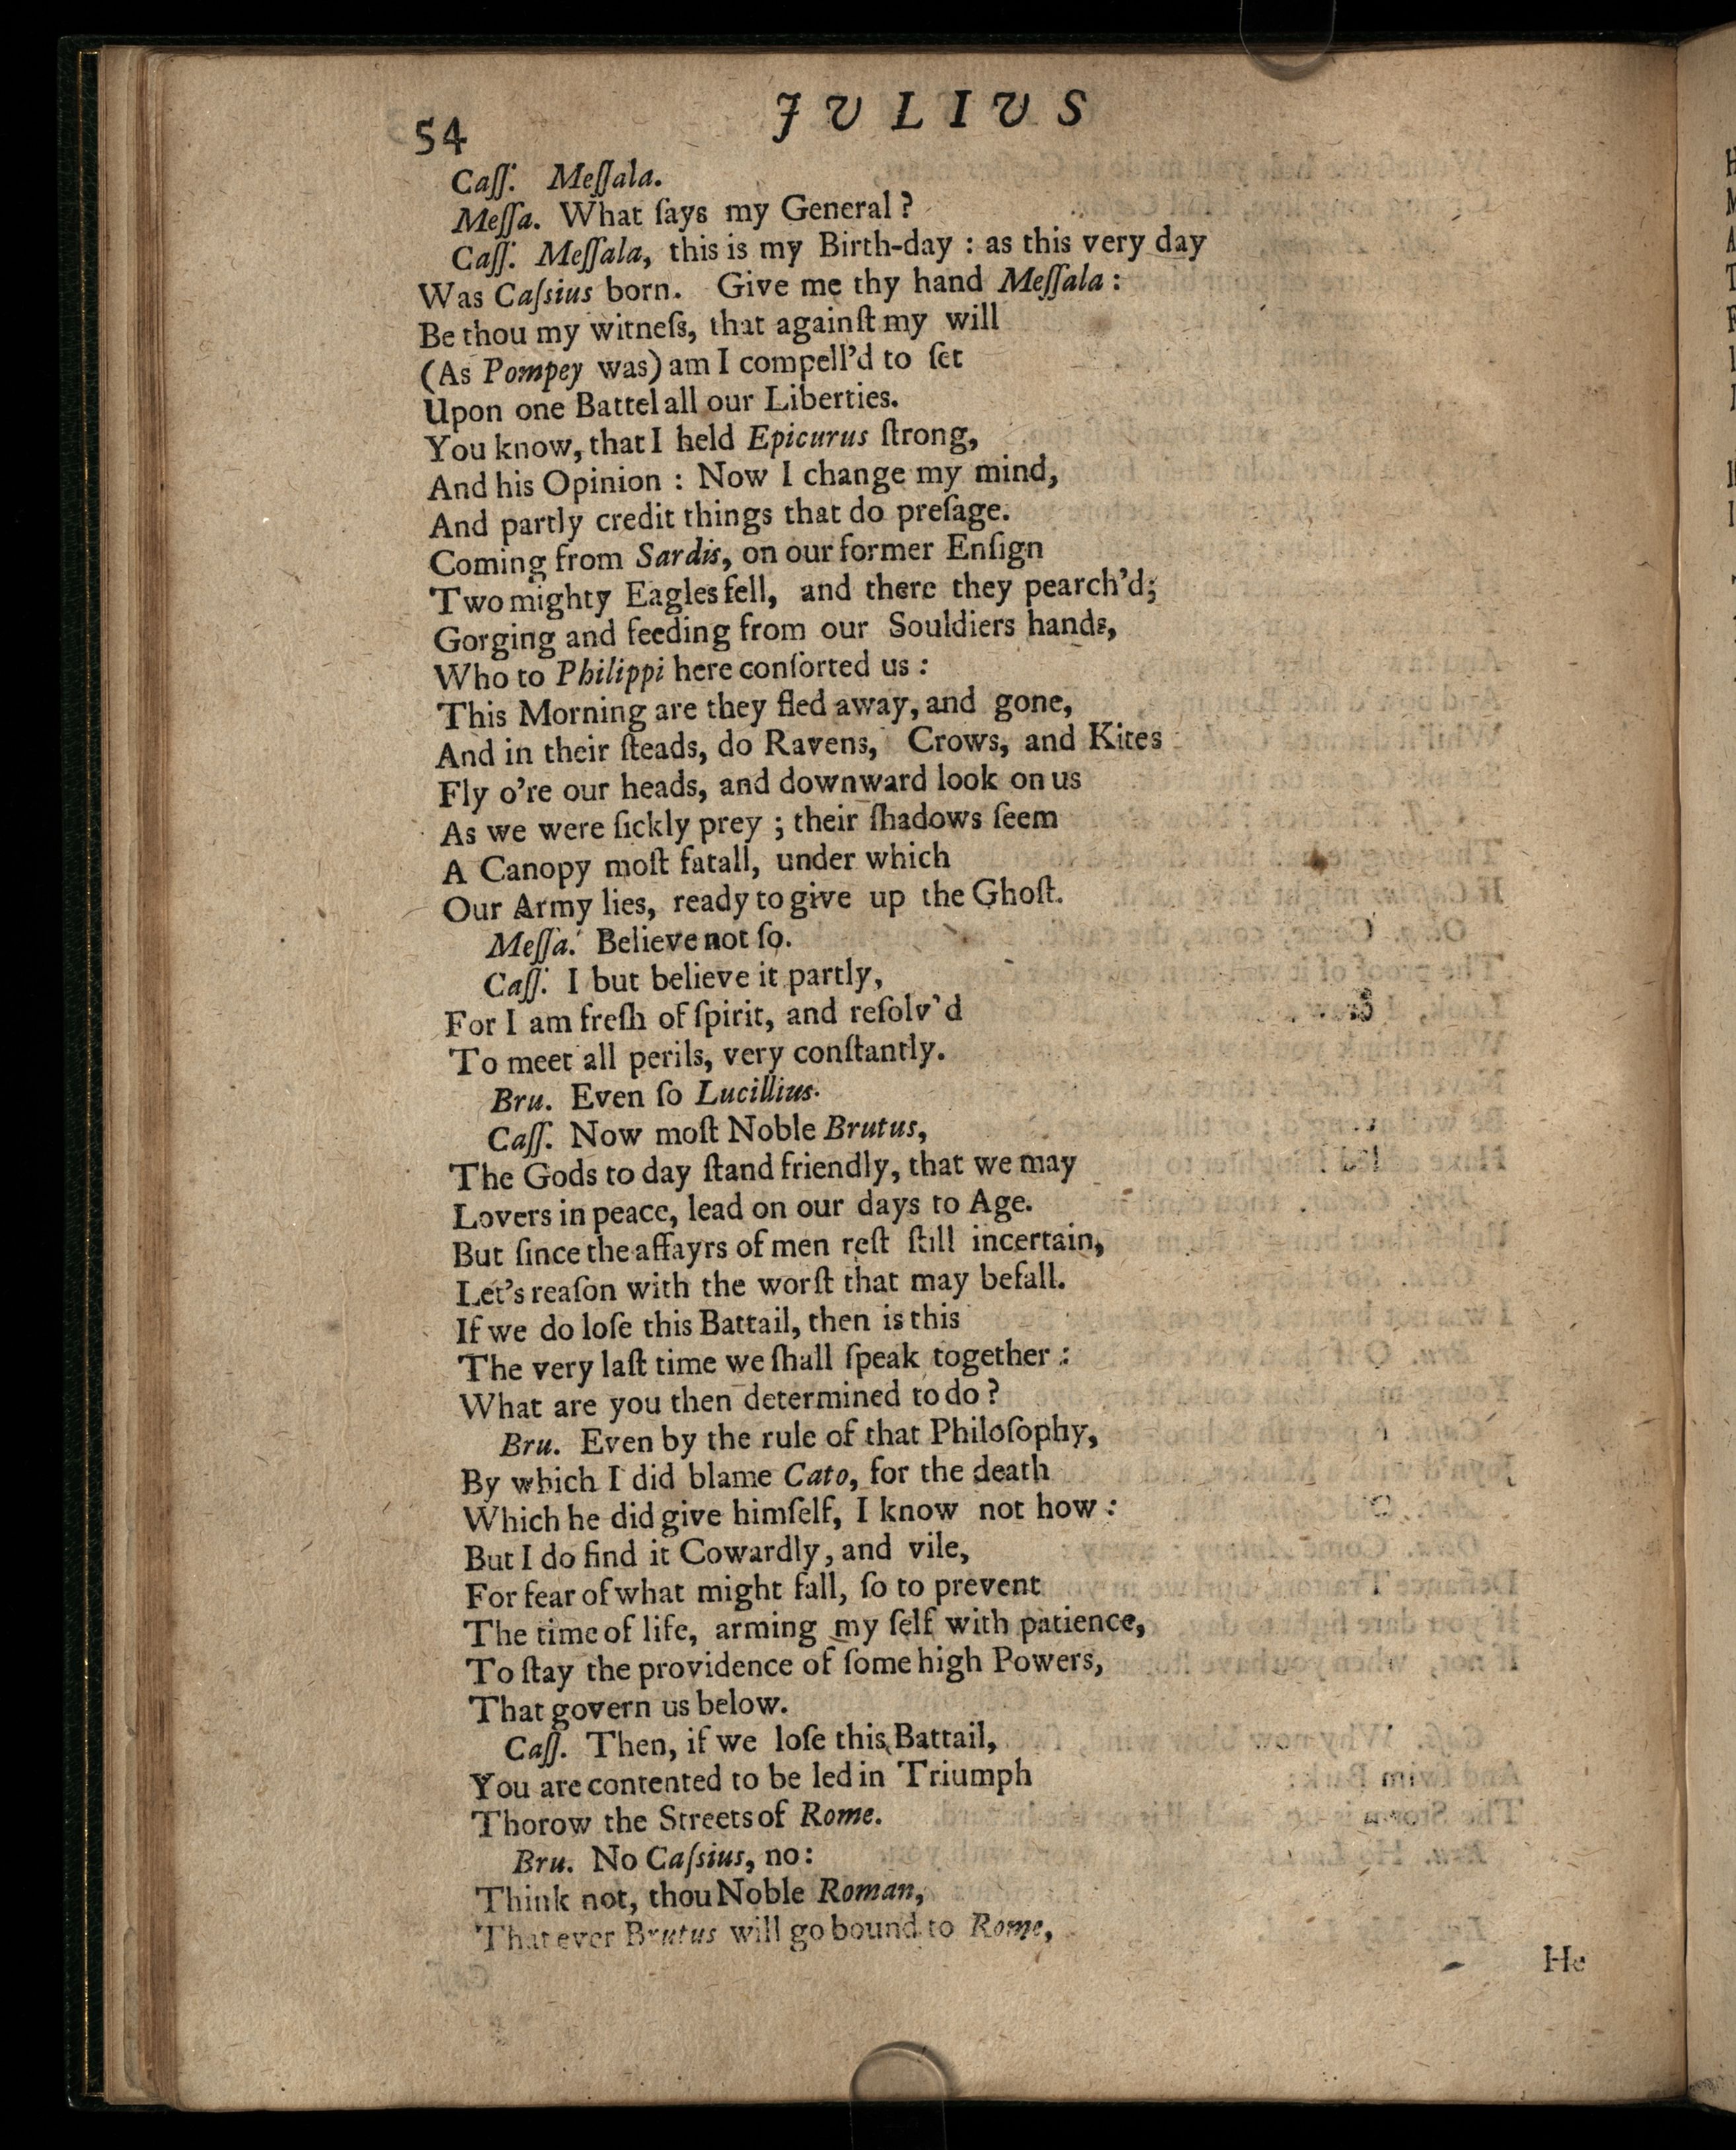 54
JVLIVS
Caſſ. Meſſala.
Meſſa. What ſays my General ?
Caſſ. Meſſala, this is my Birth-day : as this very day
Was Caſsius born. Give me thy hand Meſſala :
Be thou my witneſs, that againſt my will
(As Pompey was) am I compell'd to ſet
Upon one Battel all our Liberties.
You know, that I held Epicurus ſtrong,
And his Opinion : Now I change my mind,
And partly credit things that do preſage.
Coming from Sardis, on our former Enſign
Two mighty Eagles fell, and there they pearch'd;
Gorging and feeding from our Souldiers hands,
Who to Philippi here conſorted us :
This Morning are they fled away, and gone,
And in their ſteads, do Ravens, Crows, and Kites
Fly o're our heads, and downward look on us
As we were ſickly prey ; their ſhadows ſeem
A Canopy moſt fatall, under which
Our Army lies, ready to give up the Ghoſt.
Meſſa. Believe not ſo.
Caſſ. I but believe it partly,
For I am freſh of ſpirit, and reſolv'd
To meet all perils, very conſtantly.
Bru. Even ſo Lucillius.
Caſſ. Now moſt Noble Brutus,
The Gods to day ſtand friendly, that we may
Lovers in peace, lead on our days to Age.
But ſince the affayrs of men reſt ſtill incertain,
Let's reaſon with the worſt that may befall.
If we do loſe this Battail, then is this
The very laſt time we ſhall ſpeak together :
What are you then determined to do ?
Bru. Even by the rule of that Philoſophy,
By which I did blame Cato, for the death
Which he did give himſelf, I know not how :
But I do find it Cowardly, and vile,
For fear of what might fall, ſo to prevent
The time of life, arming my ſelf with patience,
To ſtay the providence of ſome high Powers,
That govern us below.
Caſſ. Then, if we loſe this Battail,
You are contented to be led in Triumph
Thorow the Streets of Rome.
Bru. No Caſsius, no :
Think not, thou Noble Roman,
That ever Brutus will go bound to Rome,
He